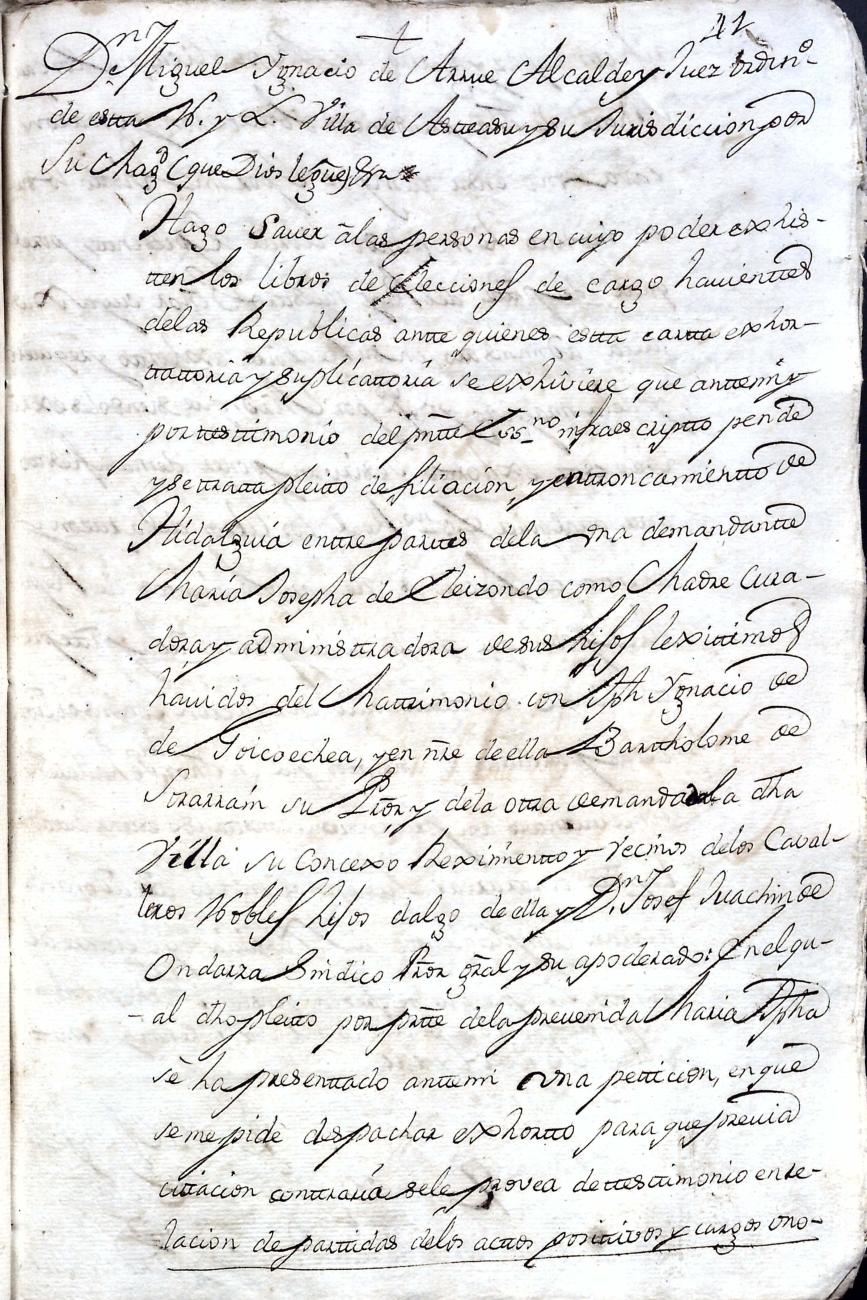 41
Dn Miguel Ygnacio de Arrue Alcalde y Juez ordinº
de estta N. y L. Villa de Astteasu y su Jurisdiccion por
Su Magd (que Dios legue) &ra
Hago Saver â las personas en cuyo poder exhis-
tten los libros de Elecciones de cargo havienttes
de las Republicas antte quienes estta cartta exhor-
ttattoria y suplicattoria se exhiviere que anttemi y
por testtimonio del pntte Essno infraescriptto pende
y se ttratta pleitto de filiacion, y enttroncamientto de
Hidalguia enttre parttes de la una demandantte
Maria Josepha de Eleizondo como Madre Cura-
dora y administtradora de sus hijos lexittimos
havidos del Mattrimonio con Jph Ygnacio de
de Goicoechea, y en nre de ella Barttholome de
Sorarrain su Pror, y de la otra demandada dha
Villa su Concexo Reximientto y vecinos de los Caval-
leros Nobles hijos dalgo de ella y Dn Josef Juachin de
Ondarza Sindico Pror gral y su apoderado: En el qu-
-al dho pleitto por prtte de la prevenida Maria Jpha
se ha presenttado anttemi una petticion, en que
se me pide despachar exhortto para que previa
cittacion conttraria se le provea de ttesttimonio en re-
lacion de parttidas de los acttos posittivos y cargos ono-